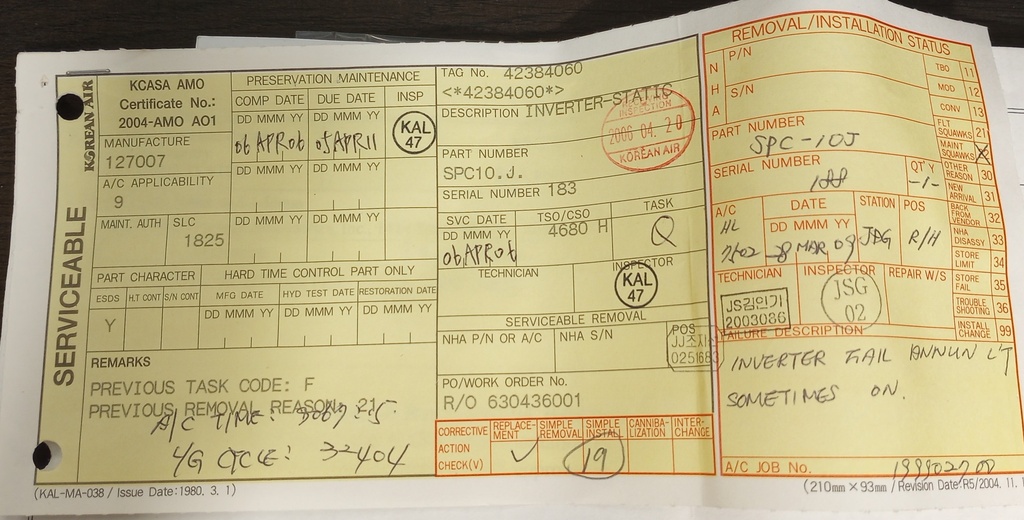 SERVICEABLE
KOREAN AIR
KCASA AMO
Certificate No.:
2004-AMO AO1
MANUFACTURE
127007
A/C APPLICABILITY
9
MAINT. AUTH
SLC
1825
PRESERVATION MAINTENANCE
COMP DATE DUE DATE INSP
DD MMM YY DD MMM YY
06 APR06 05 APR11
KAL
47
DD MMM YY DD MMM YY
DD MMM YY DD MMM YY
PART CHARACTER
HARD TIME CONTROL PART ONLY
ESDS H.T CONT S/N CONT MFG DATE HYD TEST DATE RESTORATION DATE
Y
DD MMM YY DD MMM YY DD MMM YY
REMARKS
PREVIOUS TASK CODE: F
PREVIOUS REMOVAL REASON: 21
A/C TIME:
CYCLE: 32404
TAG No. 42384060
<*42384060*>
DESCRIPTION INVERTER-STATIC
INSPECTION
2006 04. 20
KOREAN AIR
PART NUMBER
SPC10.J.
SERIAL NUMBER 183
SVC DATE TSO/CSO TASK
DD MMM YY
06 APR06
4680 H
Q
TECHNICIAN INSPECTOR
KAL
47
SERVICEABLE REMOVAL
NHA P/N OR A/C NHA S/N POS
PO/WORK ORDER No.
R/O 630436001
CORRECTIVE
ACTION
CHECK(V)
REPLACE-
MENT
SIMPLE
REMOVAL
SIMPLE
INSTALL
CANNIBA-
LIZATION
INTER-
CHANGE
19
REMOVAL/INSTALLATION STATUS
N
H
A
P/N
S/N
TBO 11
MOD 12
CONV 13
FLT
SQUAWKS 21
MAINT
SQUAWKS
OTHER
REASON 30
NEW
ARRIVAL 31
BACK
FROM
VENDOR 32
NHA
DISASSY 33
STORE
LIMIT 34
STORE
FAIL 35
TROUBLE
SHOOTING 36
INSTALL
CHANGE 99
PART NUMBER
SPC-10J
SERIAL NUMBER
QT'Y
-1-
A/C
HL
DATE
DD MMM YY
28 MAR 09
STATION
POS
R/H
TECHNICIAN
JS김인기
2003086
INSPECTOR
JSG
02
REPAIR W/S
FAILURE DESCRIPTION
INVERTER FAIL ANNUN L'T
SOMETIMES ON.
A/C JOB No.
(KAL-MA-038 / Issue Date:1980. 3. 1)
(210mm × 93mm / Revision Date:R5/2004. 11.